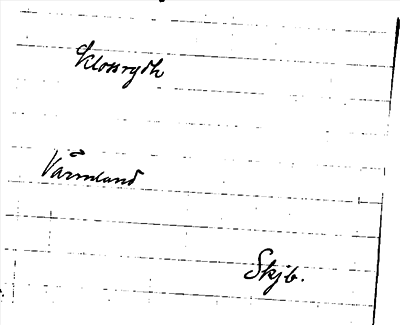 Klossrydh
Värmland
Skjb.